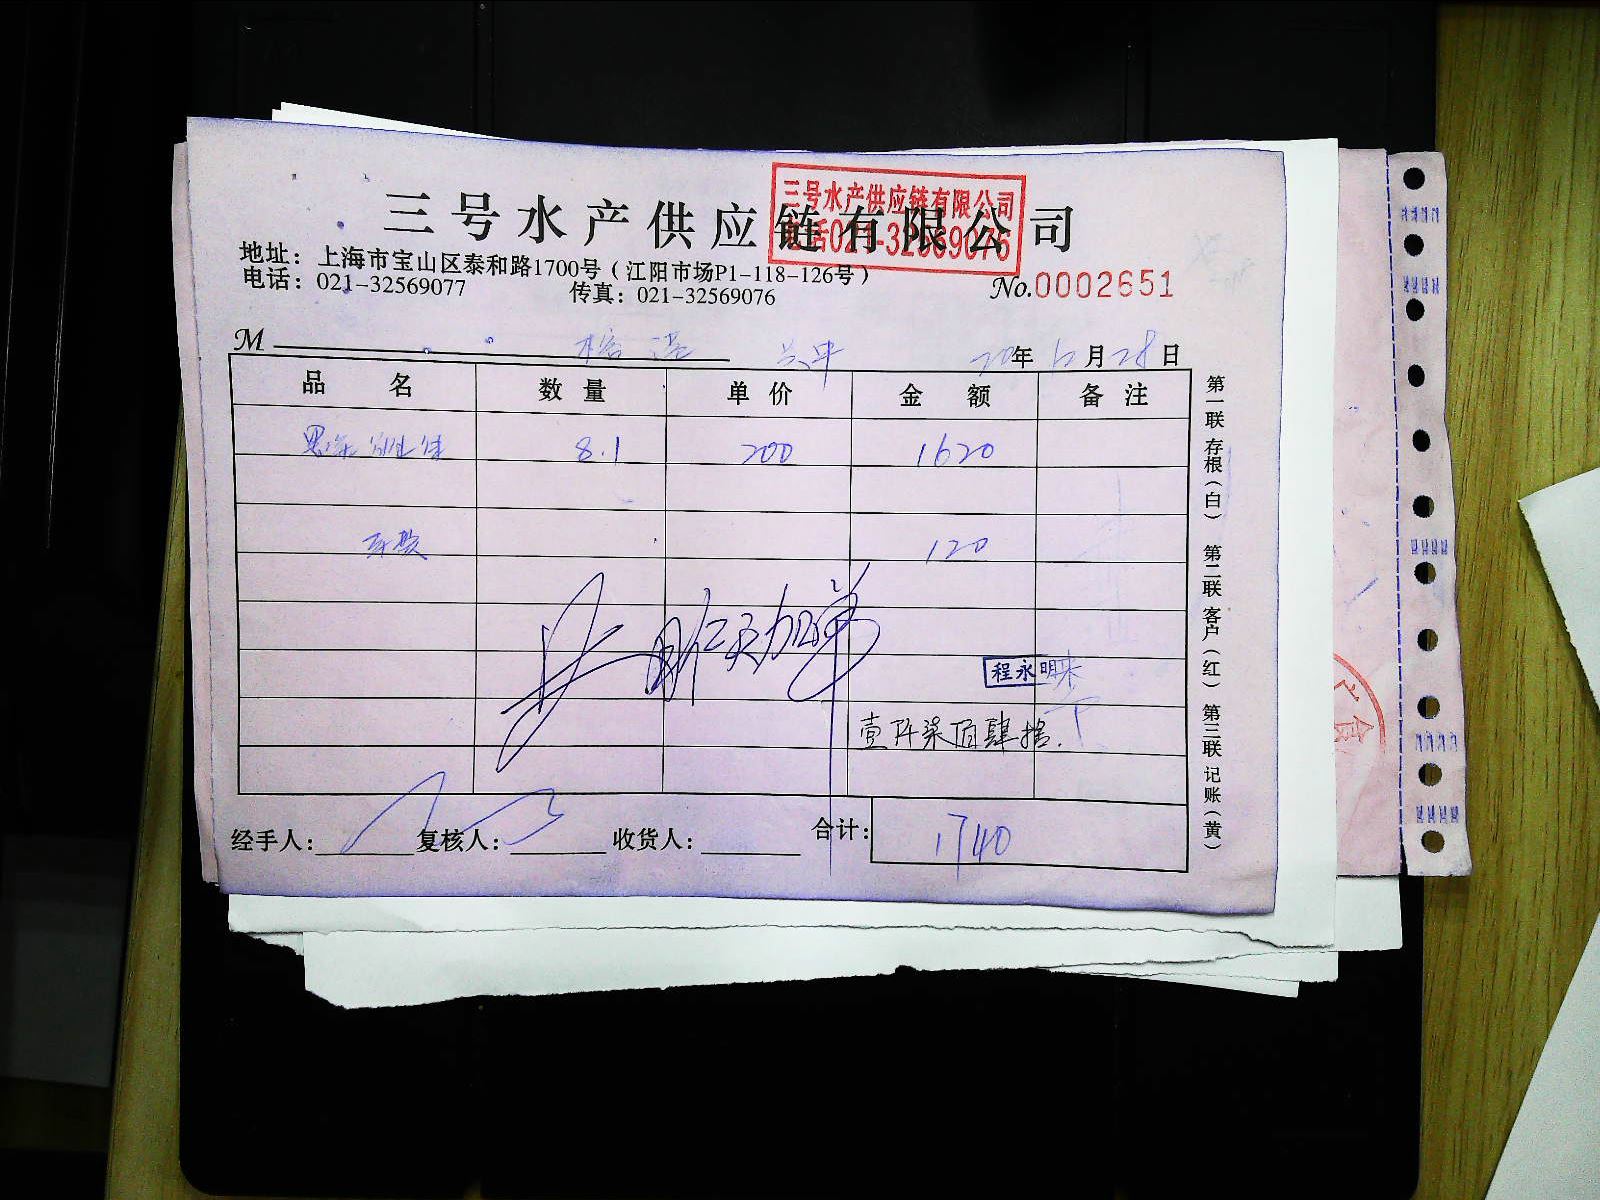 三号水产供应链有限公司
三号水产供应链有限公司
电话021-32569076
地址：上海市宝山区泰和路1700号（江阳市场P1-118-126号）
电话：021-32569077 传真：021-32569076
No.0002651
M 榕港
20年12月28日
品名 数量 单价 金额 备注
8.1 200 1620
车费 120
昨天加单
程永明
壹仟柒佰肆拾.
经手人： 复核人： 收货人： 合计： 1740
第一联存根（白） 第二联客户（红） 第三联记账（黄）